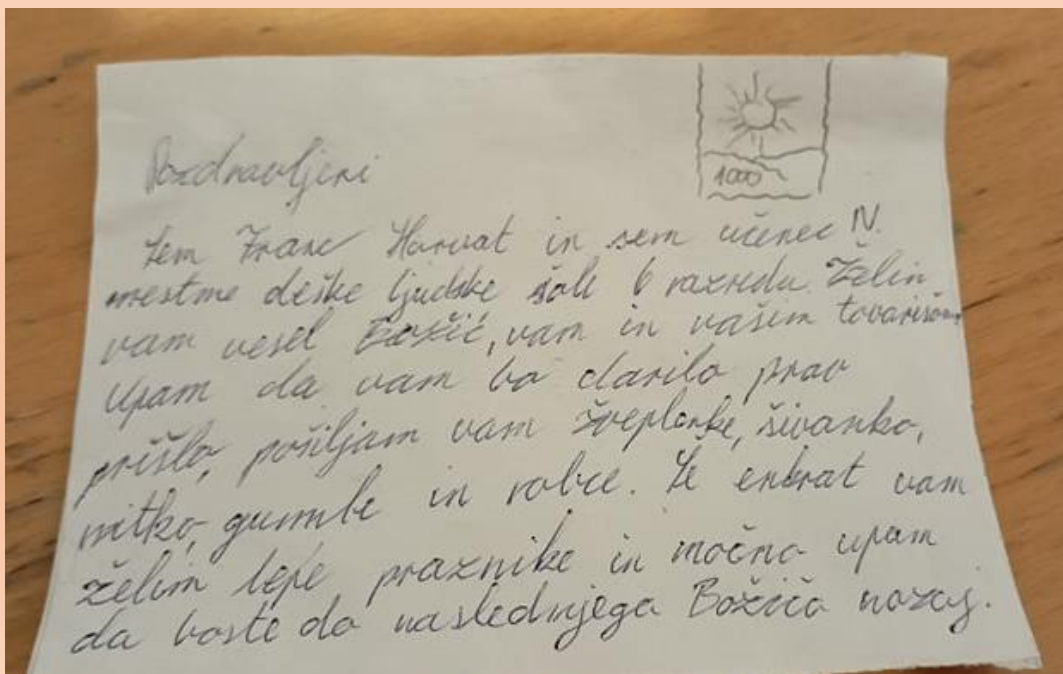 1000
Pozdravljeni
Sem Franc Horvat in sem učenec IV.
mestne deške ljudske šole 6 razreda. Želim
vam vesel Božič, vam in vašim tovarišom.
Upam da vam bo darilo prav
prišlo, pošiljam vam žveplenke, šivanko,
nitko, gumbe in robce. Še enkrat vam
želim lepe praznike in močno upam
da boste do naslednjega Božiča nazaj.